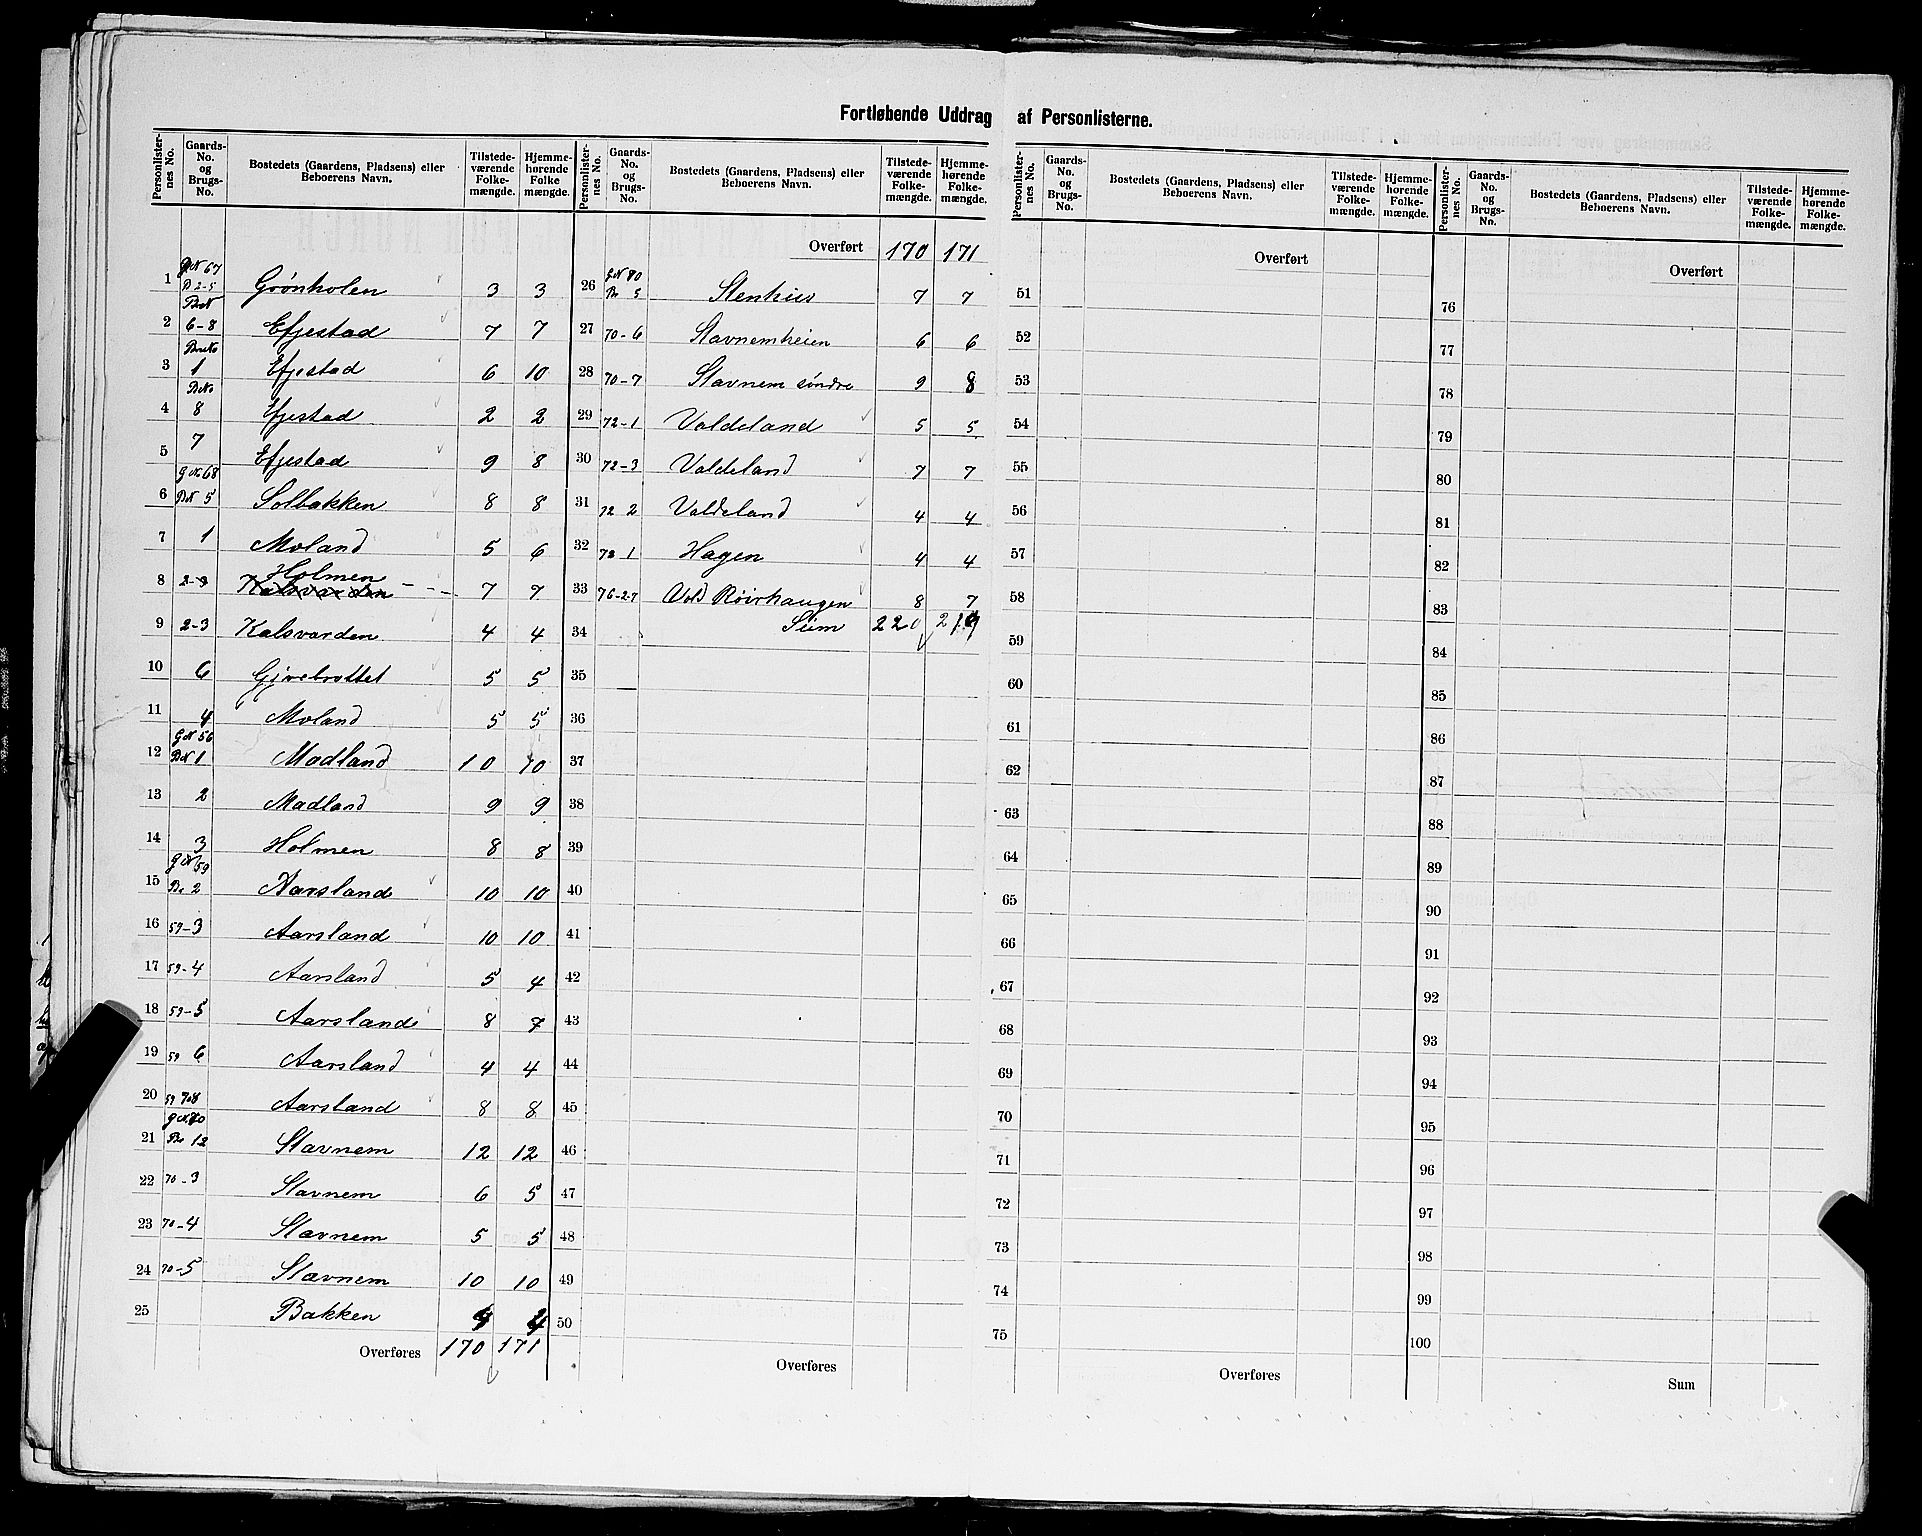 Fortløbende Uddrag af Personlisterne.
Personlister-nes No. | Gaards-No. og Brugs-No. | Bostedets (Gaardens, Pladsens) eller Beboerens Navn. | Tilstede-værende Folke-mængde. | Hjemme-hørende Folke mængde.
1 | G.N 67 B 2-5 | Grønholen | 3 | 3
2 | BrN 6-8 | Efjestad | 7 | 7
3 | BrNo 1 | Efjestad | 6 | 10
4 | BrNo 8 | Efjestad | 2 | 2
5 | 7 | Efjestad | 9 | 8
6 | G.N. 68 BN 5 | Solbakken | 8 | 8
7 | 1 | Moland | 5 | 6
8 | 2-3 | Holmen Kalsvarden | 7 | 7
9 | 2-3 | Kalsvarden | 4 | 4
10 | 6 | Gjvebrottet | 5 | 5
11 | 4 | Moland | 5 | 5
12 | G N 56 BN 1 | Madland | 10 | 10
13 | 2 | Madland | 9 | 9
14 | 3 | Holmen | 8 | 8
15 | G N 59 Br 2 | Aarsland | 10 | 10
16 | 59-3 | Aarsland | 10 | 10
17 | 59-4 | Aarsland | 5 | 4
18 | 59-5 | Aarsland | 8 | 7
19 | 59 6 | Aarsland | 4 | 4
20 | 59 7 o 8 | Aarsland | 8 | 8
21 | G N. 70 Br 12 | Stavnem | 12 | 12
22 | 70-3 | Stavnem | 6 | 5
23 | 70-4 | Stavnem | 5 | 5
24 | 70-5 | Stavnem | 10 | 10
25 | Bakken | 4 | 4
Overføres | 170 | 171
Personlister-nes No. | Gaards-No. og Brugs-No. | Bostedets (Gaardens, Pladsens) eller Beboerens Navn. | Tilstede-værende Folke-mængde. | Hjemme-hørende Folke-mængde.
Overført | 170 | 171
26 | G N 70 Br 5 | Stenhus | 7 | 7
27 | 70-6 | Stavnemheien | 6 | 6
28 | 70-7 | Stavnem søndre | 9 | 8
29 | 72-1 | Valdeland | 5 | 5
30 | 72-3 | Valdeland | 7 | 7
31 | 72 2 | Valdeland | 4 | 4
32 | 72 1 | Hagen | 4 | 4
33 | 76-2-7 | Vold Røirhaugen | 8 | 7
34 | Sum | 220 | 219
35
36
37
38
39
40
41
42
43
44
45
46
47
48
49
50
Overføres
Personlister-nes No. | Gaards-No. og Brugs-No. | Bostedets (Gaardens, Pladsens) eller Beboerens Navn. | Tilstede-værende Folke-mængde. | Hjemme-hørende Folke-mængde.
Overført
51
52
53
54
55
56
57
58
59
60
61
62
63
64
65
66
67
68
69
70
71
72
73
74
75
Overføres
Personlister-nes No. | Gaards-No. og Brugs-No. | Bostedets (Gaardens, Pladsens) eller Beboerens Navn. | Tilstede-værende Folke-mængde. | Hjemme-hørende Folke-mængde.
Overført
76
77
78
79
80
81
82
83
84
85
86
87
88
89
90
91
92
93
94
95
96
97
98
99
100
Sum